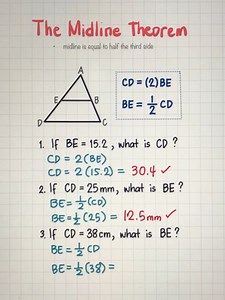 The Midline Theorem
• midline is equal to half the third side
A
E
B
D
C
CD = (2)BE
BE = 1/2 CD
1. If BE = 15.2, what is CD?
CD = 2(BE)
CD = 2(15.2) = 30.4 ✓
2. If CD = 25mm, what is BE?
BE = 1/2(CD)
BE = 1/2(25) = 12.5mm ✓
3. If CD = 38cm, what is BE?
BE = 1/2 CD
BE = 1/2(38) =